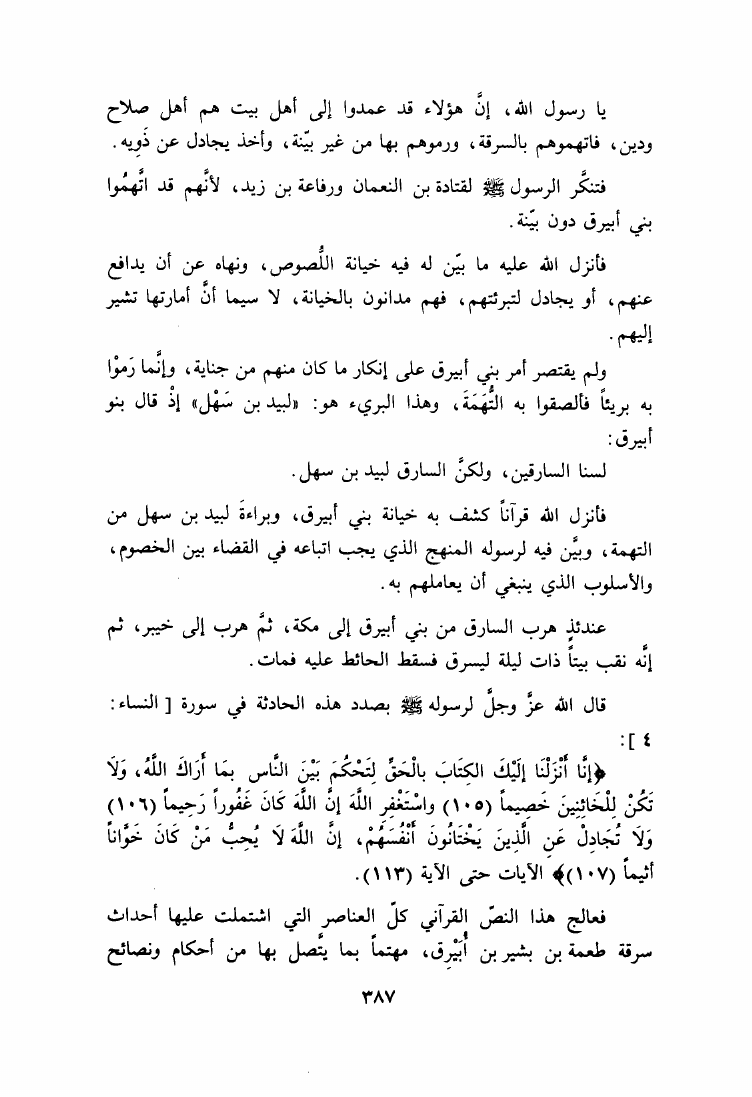 يا رسول الله، إنَّ هؤلاء قد عمدوا إلى أهل بيت هم أهل صلاح
ودين، فاتهموهم بالسرقة، ورموهم بها من غير بيّنة، وأخذ يجادل عن ذَويه.
فتنكَّر الرسول ﷺ لقتادة بن النعمان ورفاعة بن زيد، لأنَّهم قد اتَّهمُوا
بني أبيرق دون بيّنة.
فأنزل الله عليه ما بيّن له فيه خيانة اللُّصوص، ونهاه عن أن يدافع
عنهم، أو يجادل لتبرئتهم، فهم مدانون بالخيانة، لا سيما أنَّ أمارتها تشير
إليهم.
ولم يقتصر أمر بني أبيرق على إنكار ما كان منهم من جناية، وإنَّما رَموْا
به بريئاً فألصقوا به التُّهَمَةَ، وهذا البريء هو: «لبيد بن سَهْل» إذْ قال بنو
أبيرق:
لسنا السارقين، ولكنَّ السارق لبيد بن سهل.
فأنزل الله قرآناً كشف به خيانة بني أبيرق، وبراءةَ لبيد بن سهل من
التهمة، وبيَّن فيه لرسوله المنهج الذي يجب اتباعه في القضاء بين الخصوم،
والأسلوب الذي ينبغي أن يعاملهم به.
عندئذٍ هرب السارق من بني أبيرق إلى مكة، ثمَّ هرب إلى خيبر، ثم
إنَّه نقب بيتاً ذات ليلة ليسرق فسقط الحائط عليه فمات.
قال الله عزَّ وجلَّ لرسوله ﷺ بصدد هذه الحادثة في سورة [ النساء:
٤ ]:
﴿إنَّا أَنْزَلْنَا إلَيْكَ الكِتَابَ بالْحَقِّ لِتَحْكُمَ بَيْنَ النَّاس بمَا أَرَاكَ اللَّهُ، وَلَا
تَكُنْ لِلْخَائِنِينَ خَصِيماً (١٠٥) واسْتَغْفِرِ اللَّهَ إنَّ اللَّهَ كَانَ غَفُوراً رَحِيماً (١٠٦)
وَلَا تُجَادِلْ عَنِ الَّذِينَ يَخْتَانُونَ أَنْفُسَهُمْ، إنَّ اللَّهَ لَا يُحِبُّ مَنْ كَانَ خَوَّاناً
أثيماً (١٠٧)﴾ الآيات حتى الآية (١١٣).
فعالج هذا النصّ القرآني كلّ العناصر التي اشتملت عليها أحداث
سرقة طعمة بن بشير بن أُبَيْرِق، مهتماً بما يتَّصل بها من أحكام ونصائح
٣٨٧